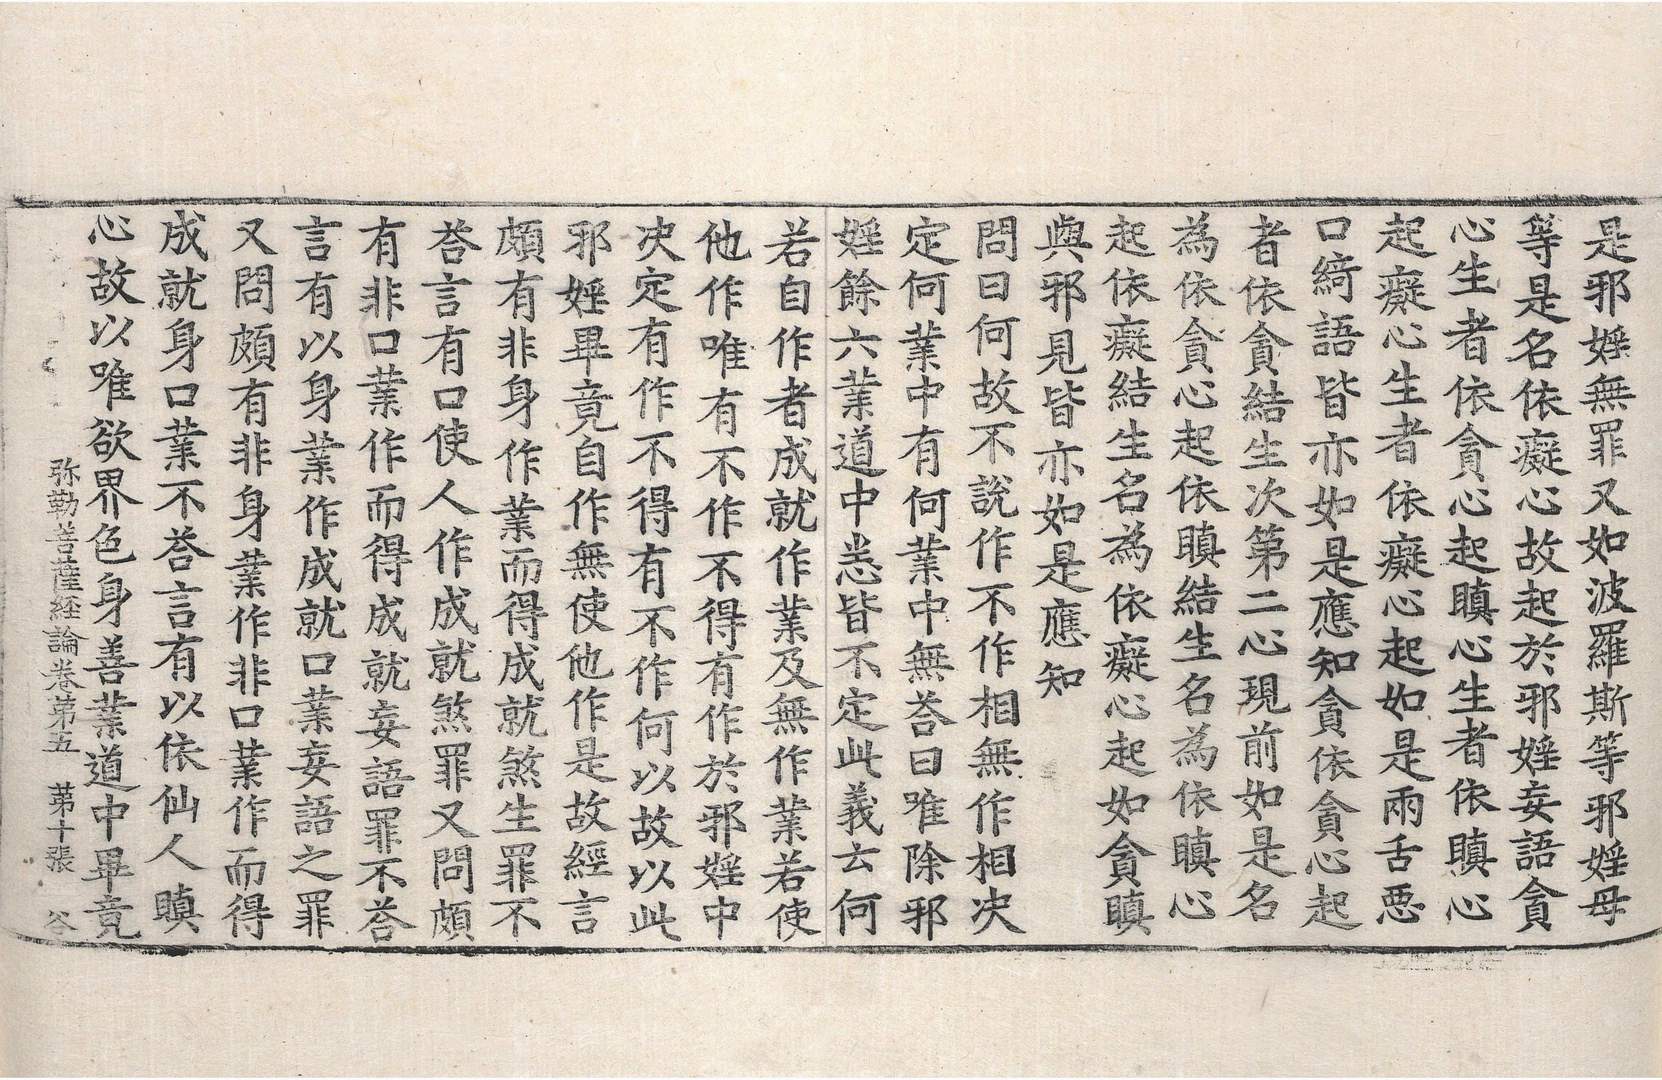 是邪婬無罪又如波羅斯等邪婬母
等是名依癡心故起於邪婬妄語貪
心生者依貪心起瞋心生者依瞋心
起癡心生者依癡心起如是兩舌惡
口綺語皆亦如是應知貪依貪心起
者依貪結生次第二心現前如是名
為依貪心起依瞋結生名為依瞋心
起依癡結生名為依癡心起如貪瞋
與邪見皆亦如是應知
問曰何故不說作不作相無作相决
定何業中有何業中無荅曰唯除邪
婬餘六業道中悉皆不定此義云何
若自作者成就作業及無作業若使
他作唯有不作不得有作於邪婬中
决定有作不得有不作何以故以此
邪婬畢竟自作無使他作是故經言
頗有非身作業而得成就煞生罪不
荅言有口使人作成就煞罪又問頗
有非口業作而得成就妄語罪不荅
言有以身業作成就口業妄語之罪
又問頗有非身業作非口業作而得
成就身口業不荅言有以依仙人瞋
心故以唯欲界色身善業道中畢竟
弥勒菩薩経論卷第五 第十張 谷